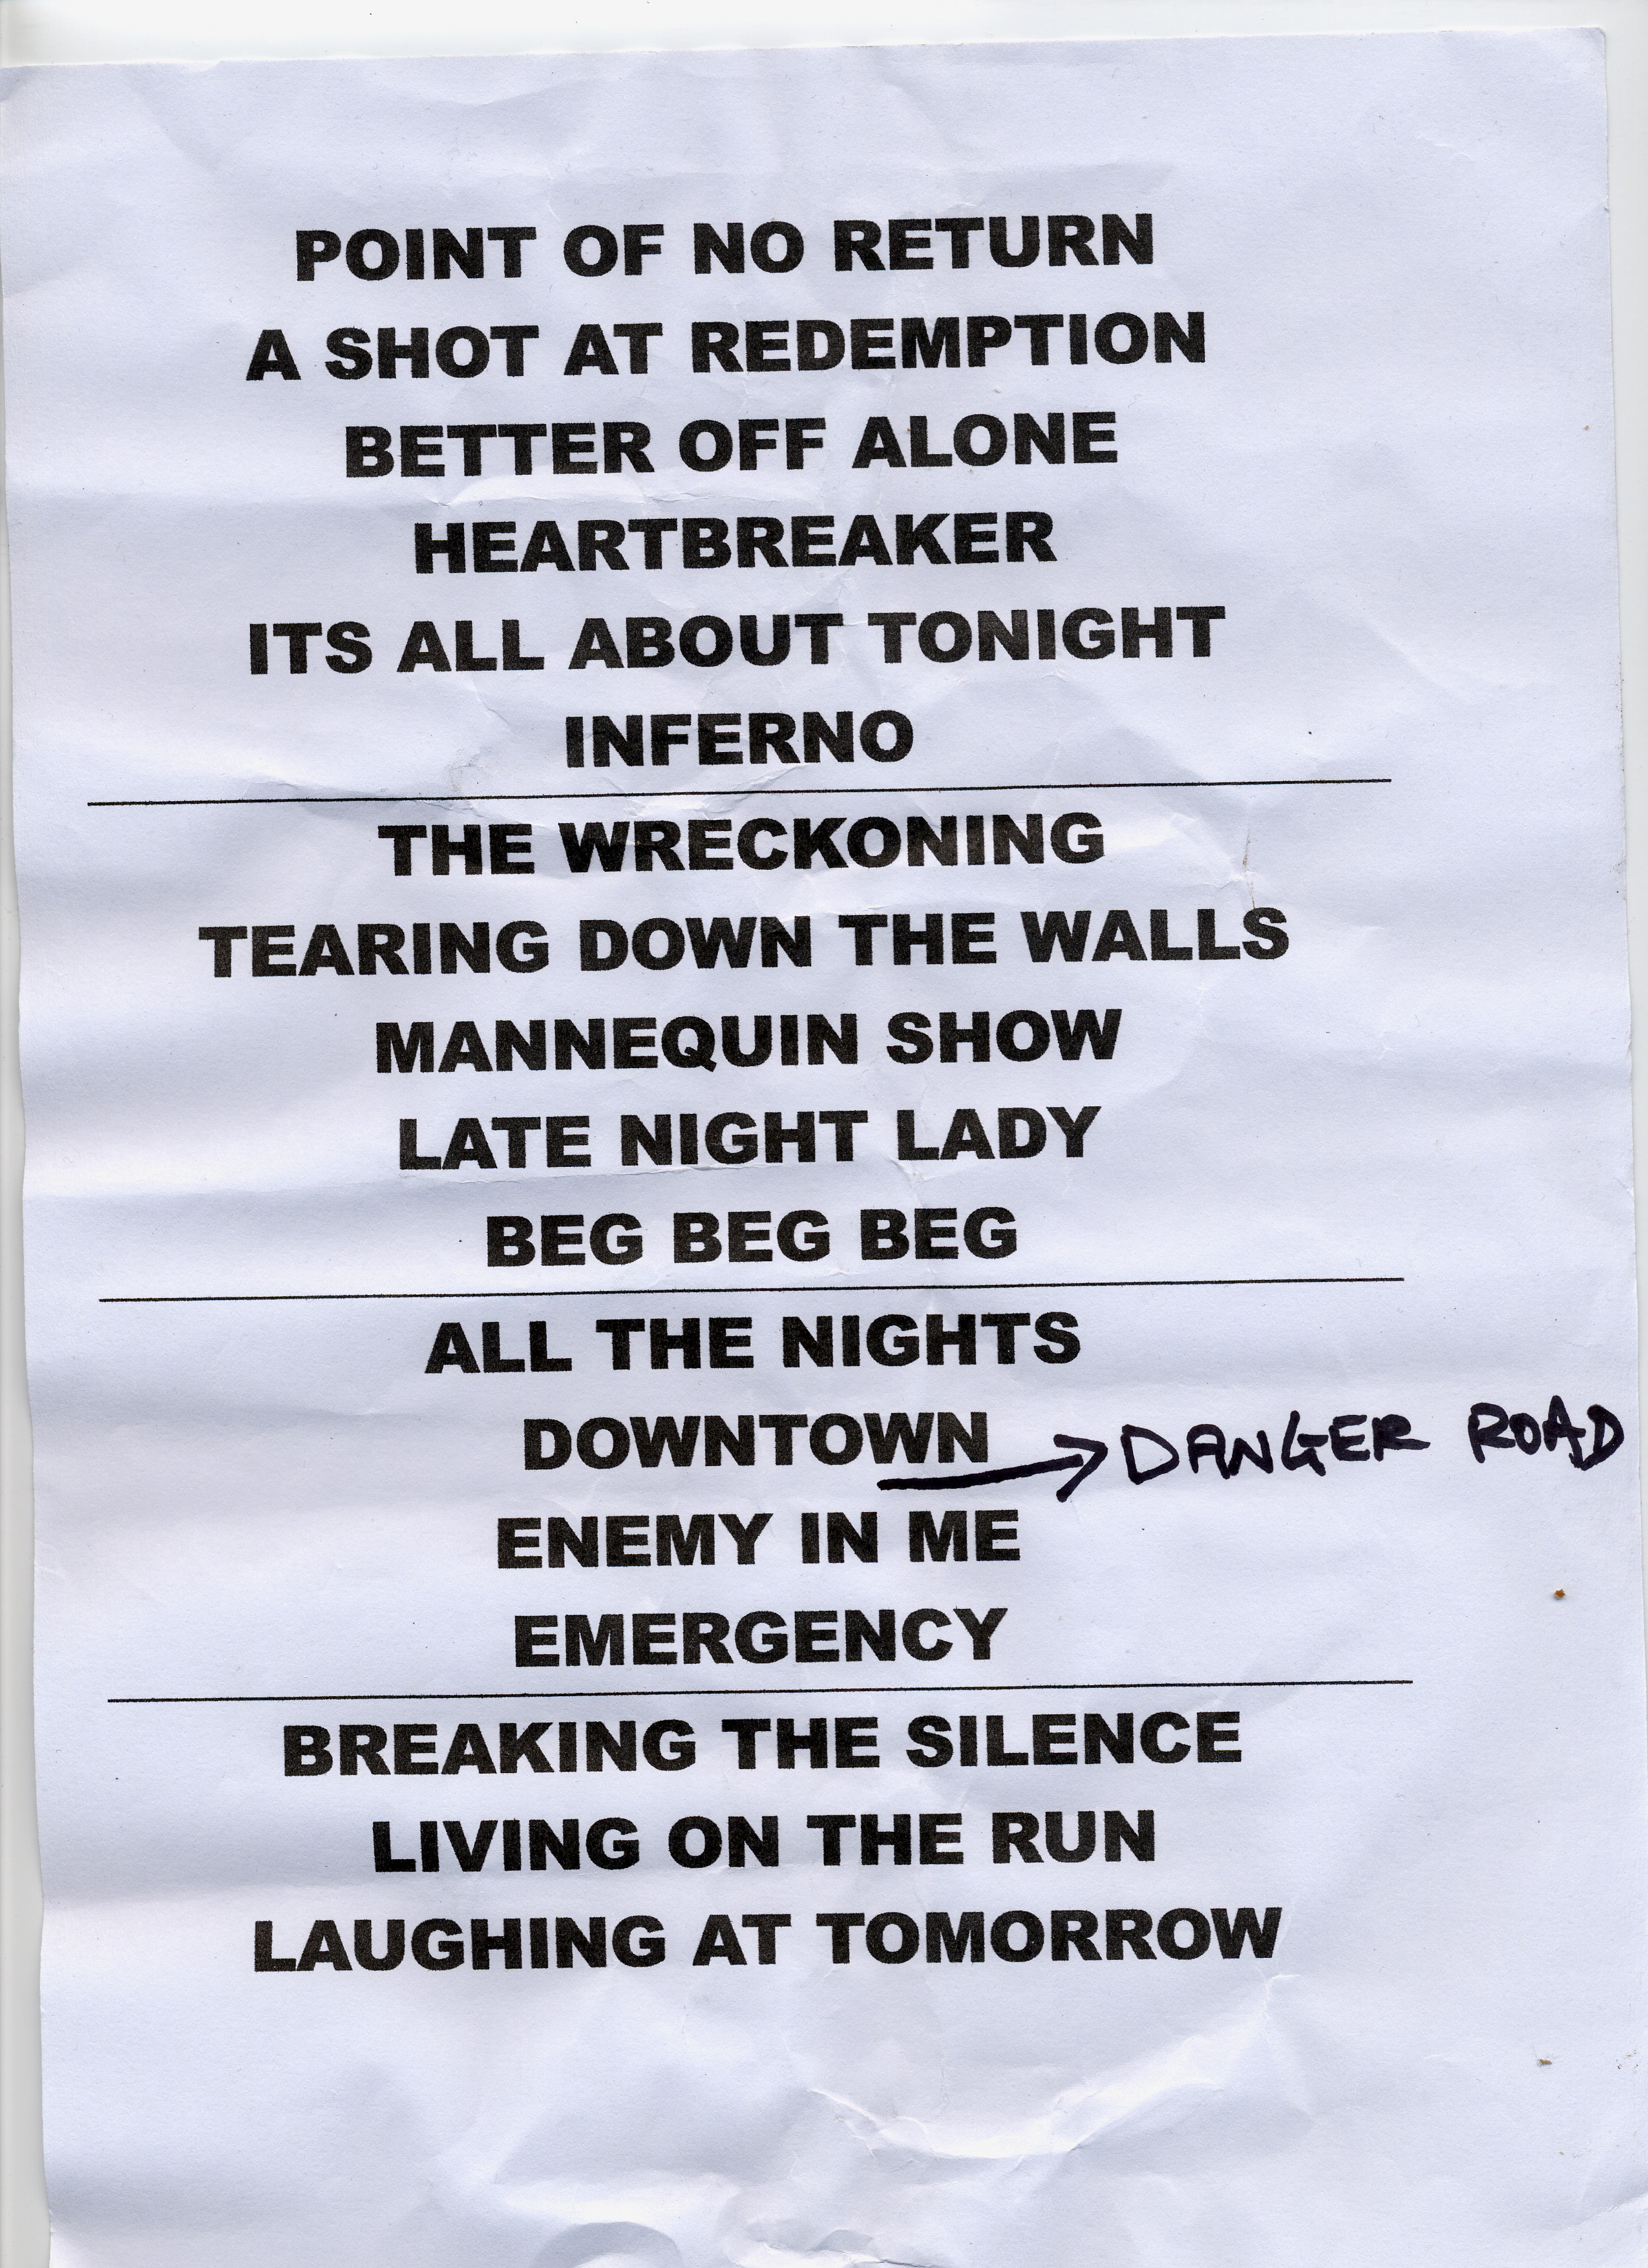 POINT OF NO RETURN
A SHOT AT REDEMPTION
BETTER OFF ALONE
HEARTBREAKER
ITS ALL ABOUT TONIGHT
INFERNO
THE WRECKONING
TEARING DOWN THE WALLS
MANNEQUIN SHOW
LATE NIGHT LADY
BEG BEG BEG
ALL THE NIGHTS
DOWNTOWN → DANGER ROAD
ENEMY IN ME
EMERGENCY
BREAKING THE SILENCE
LIVING ON THE RUN
LAUGHING AT TOMORROW